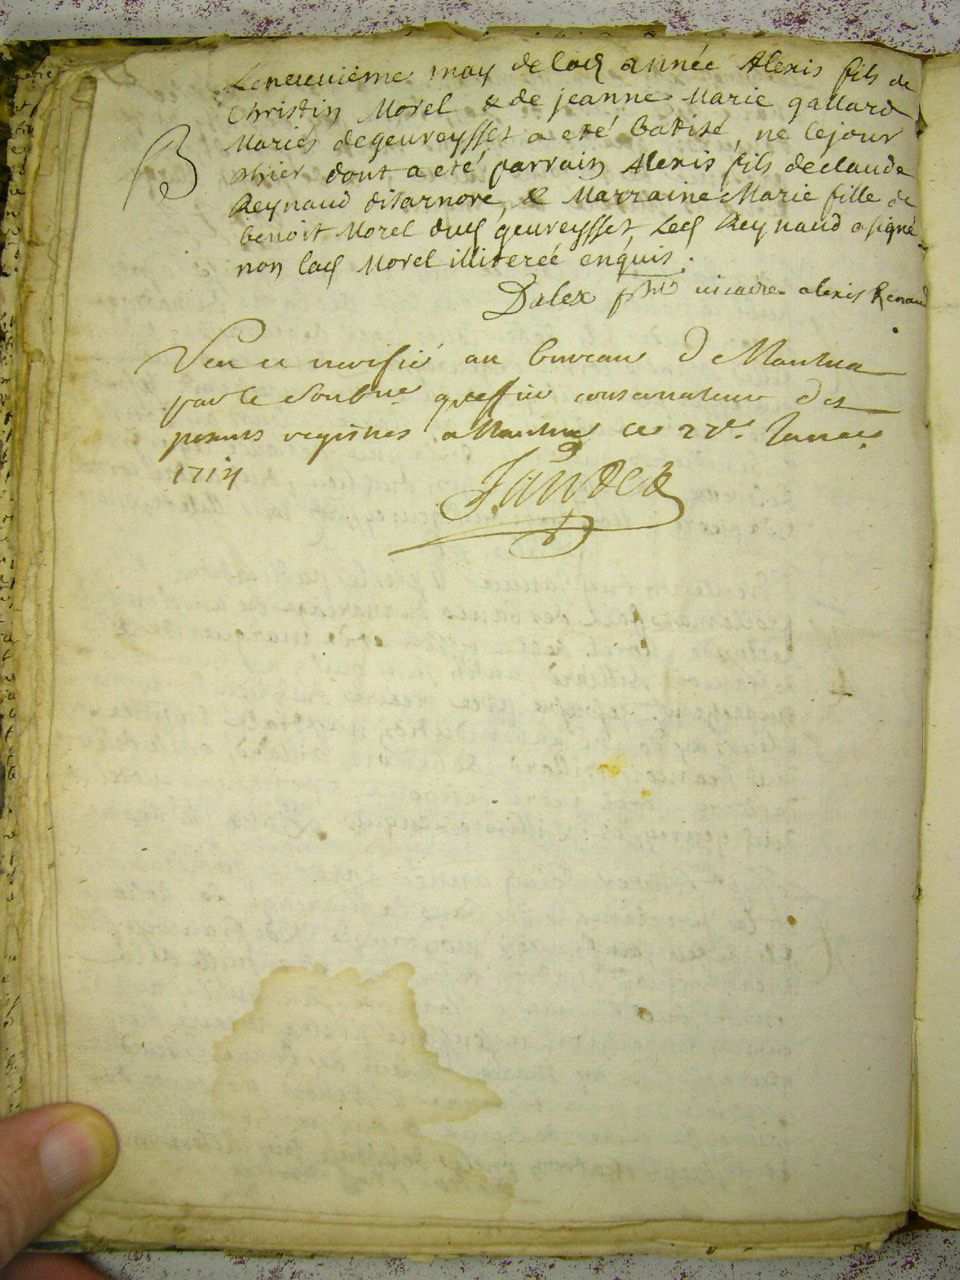 Le neuvieme may de lad année Alexis fils de
Christin Morel & de jeanne Marie gallard
Mariés de geureysset a eté batisé, né le jour
dhier dont a eté parrain Alexis fils de claude
Reynaud disarnore, & Marraine Marie fille de
benoit Morel dud geureysset, Led Reynaud a signé
non lad Morel illiterée enquis.
B
Dalex ptre vicaire alexis Renaud
Veu et verifié au bureau de Nantua
par le Soubne greffier conservateur des
presents registres a Nantua ce 22e. Janer
1714